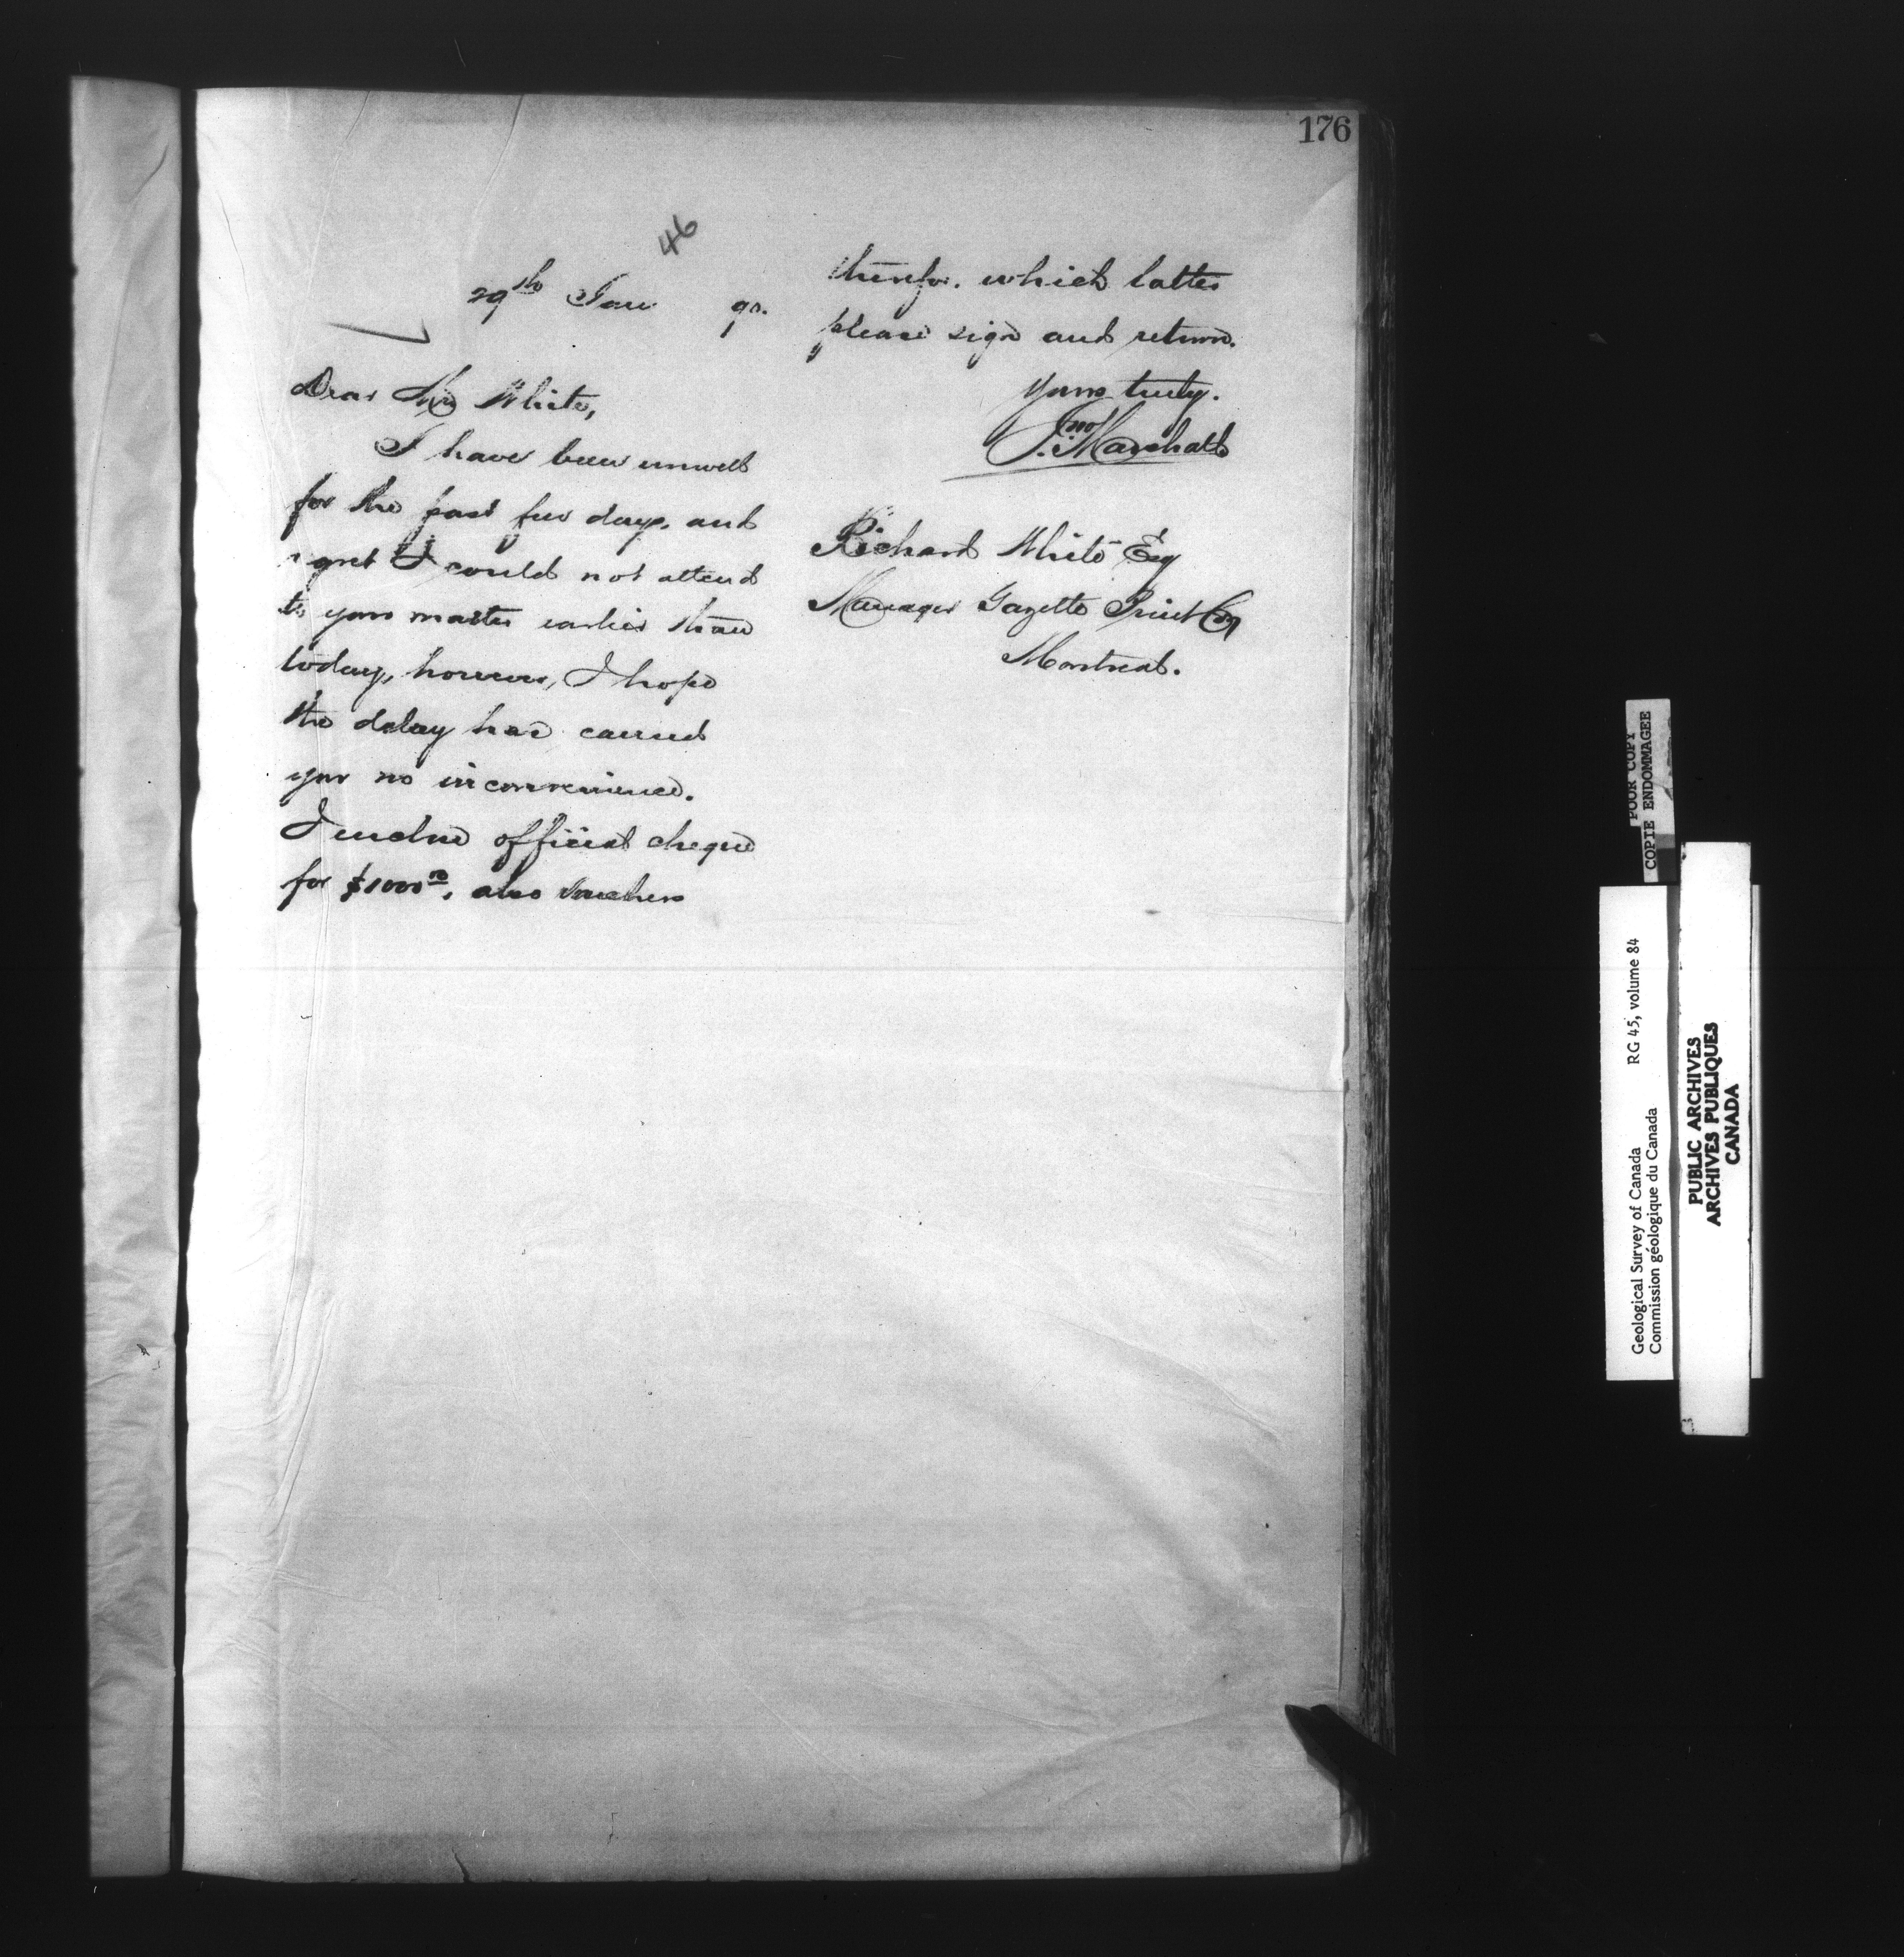 176
46
29th Jan 90.
Dear Mr White,
I have been unwell
for the past few days, and
regret I could not attend
to your matter earlier than
today, however, I hope
the delay has caused
you no inconvenience.
I enclose official cheque
for $1000.00, also Vouchers
therefor. which latter
please sign and return.
Yours truly.
Jno Marshall
Richard White Esq
Manager Gazette Print Coy
Montreal.
POOR COPY
COPIE ENDOMMAGEE
Geological Survey of Canada RG 45, volume 84
Commission géologique du Canada
PUBLIC ARCHIVES
ARCHIVES PUBLIQUES
CANADA